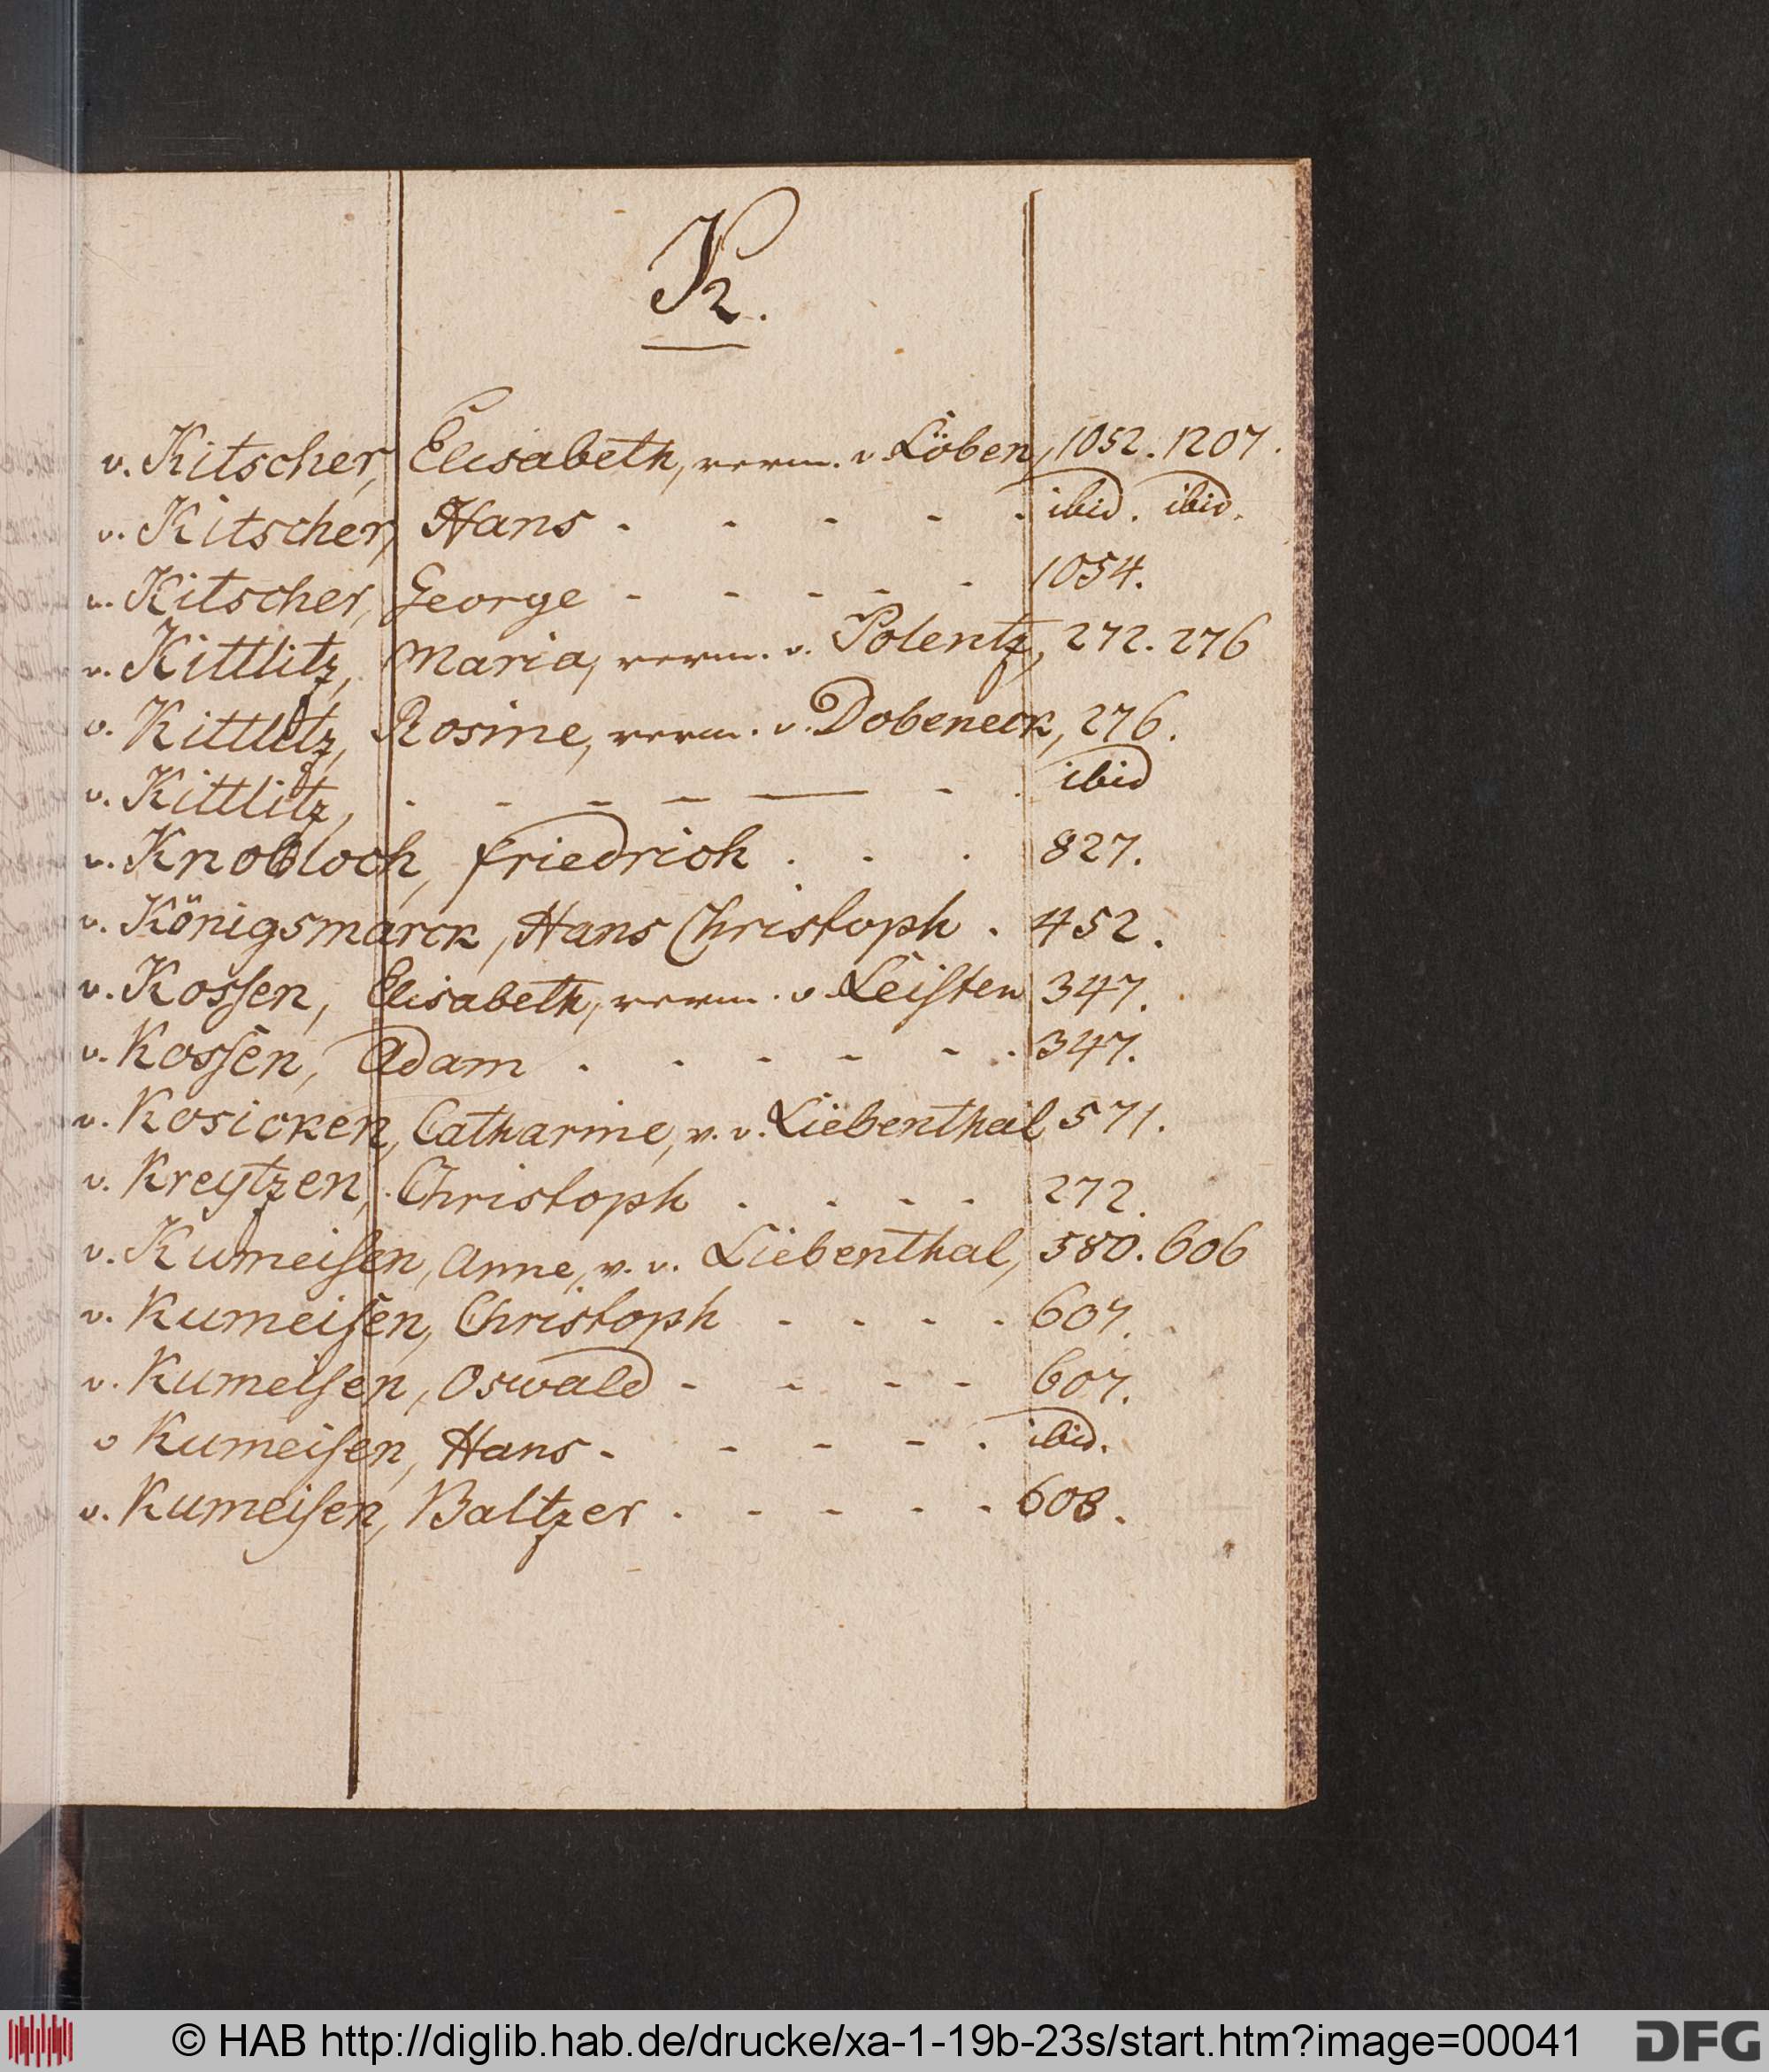 K.
v. Kitscher, Elisabeth, verm. v Löben, 1052. 1207.
v. Kitscher, Hans - - - - - ibid. ibid.
v. Kitscher, George - - - - - 1054.
v. Kittlitz, Maria, verm. v. Polentz, 272. 276
v. Kittlitz, Rosine, verm. v. Dobeneck, 276.
v. Kittlitz, - - - - - - ibid
v. Knobloch, Friedrich . . . 827.
v. Königsmarck, Hans Christoph . 452.
v. Kossen, Elisabeth, verm. v. Leisten 347.
v. Kossen, Adam . . - - - . 347.
v. Kosicken, Catharine, v. v. Liebenthal, 571.
v. Kreytzen, Christoph . . - - 272.
v. Kumeisen, Anne, v. v. Liebenthal, 580. 606
v. Kumeisen, Christoph - - - - 607.
v. Kumeisen, Oswald - - - - 607.
v Kumeisen, Hans - - - - . ibid.
v. Kumeisen, Baltzer . - - - - 608.
© HAB http://diglib.hab.de/drucke/xa-1-19b-23s/start.htm?image=00041
DFG